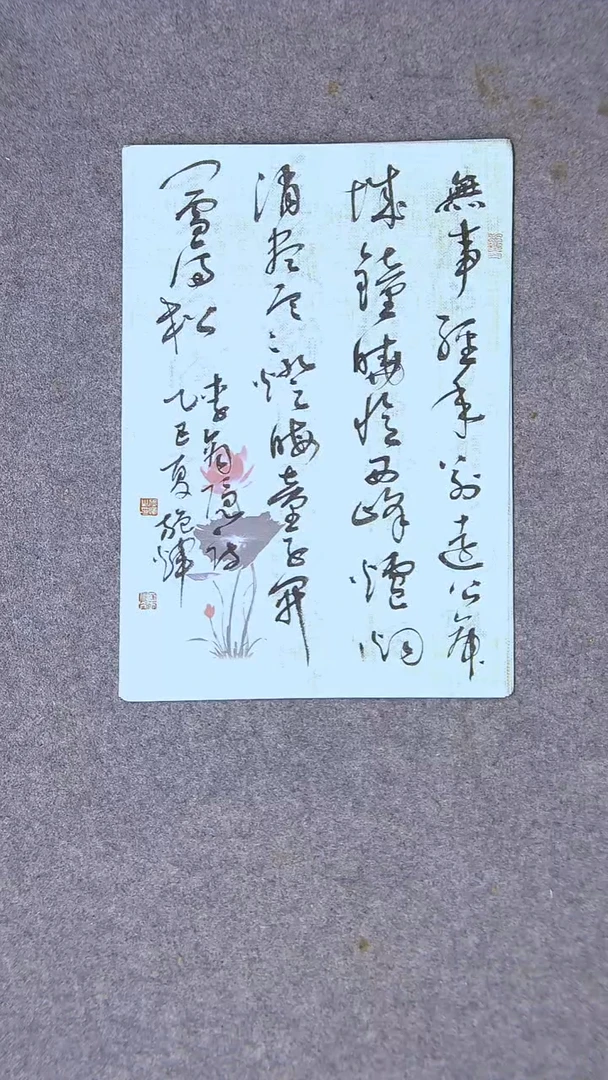 無事經年別遠公帝
城鐘曉憶西峰爐烟
消盡寒燈晦童子開
門雪滿松
李商隱詩
乙巳夏施輝